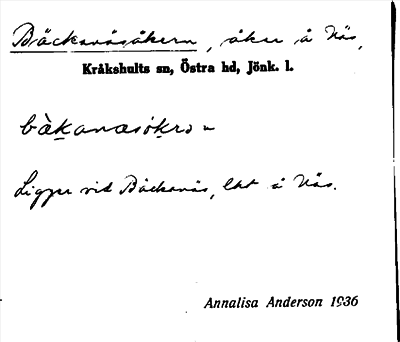 Bäckanäsåkern, åker å Näs,
Kråkshults sn, Östra hd, Jönk. l.
Ligger vid Bäckanäs, lht å Näs.
Annalisa Anderson 1936